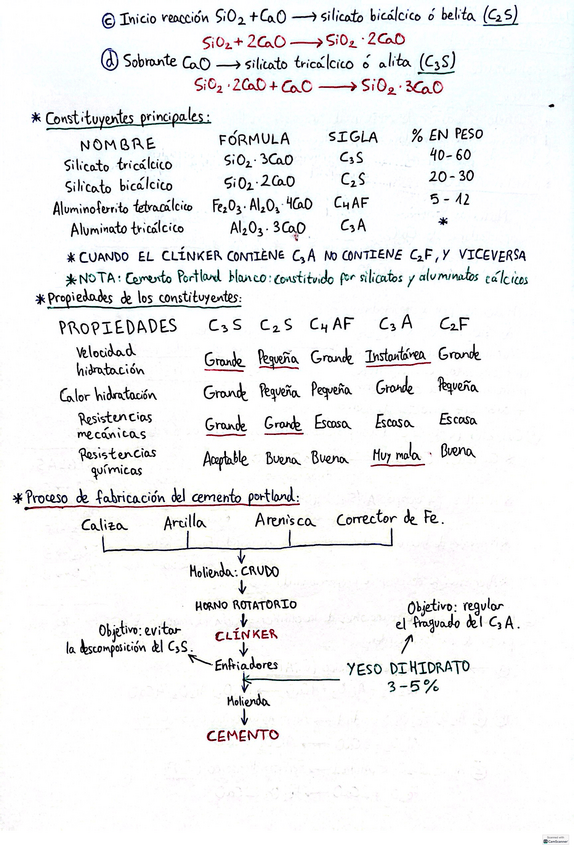 ⓒ Inicio reacción SiO₂ + CaO → silicato bicálcico ó belita (C₂S)
SiO₂ + 2CaO → SiO₂·2CaO
ⓓ Sobrante CaO → silicato tricálcico ó alita (C₃S)
SiO₂·2CaO + CaO → SiO₂·3CaO
* Constituyentes principales:
NOMBRE FÓRMULA SIGLA % EN PESO
Silicato tricálcico SiO₂·3CaO C₃S 40-60
Silicato bicálcico SiO₂·2CaO C₂S 20-30
Aluminoferrito tetracálcico Fe₂O₃·Al₂O₃·4CaO C₄AF 5-12
Aluminato tricálcico Al₂O₃·3CaO C₃A *
* CUANDO EL CLÍNKER CONTIENE C₃A NO CONTIENE C₂F, Y VICEVERSA
* NOTA: Cemento Portland blanco: constituido por silicatos y aluminatos cálcicos
* Propiedades de los constituyentes:
PROPIEDADES C₃S C₂S C₄AF C₃A C₂F
Velocidad hidratación Grande Pequeña Grande Instantánea Grande
Calor hidratación Grande Pequeña Pequeña Grande Pequeña
Resistencias mecánicas Grande Grande Escasa Escasa Escasa
Resistencias químicas Aceptable Buena Buena Muy mala Buena
* Proceso de fabricación del cemento portland:
Caliza Arcilla Arenisca Corrector de Fe.
Molienda: CRUDO
HORNO ROTATORIO
CLÍNKER
Objetivo: evitar
la descomposición del C₃S.
Enfriadores
Objetivo: regular
el fraguado del C₃A.
YESO DIHIDRATO
3-5%
Molienda
CEMENTO
CamScanner